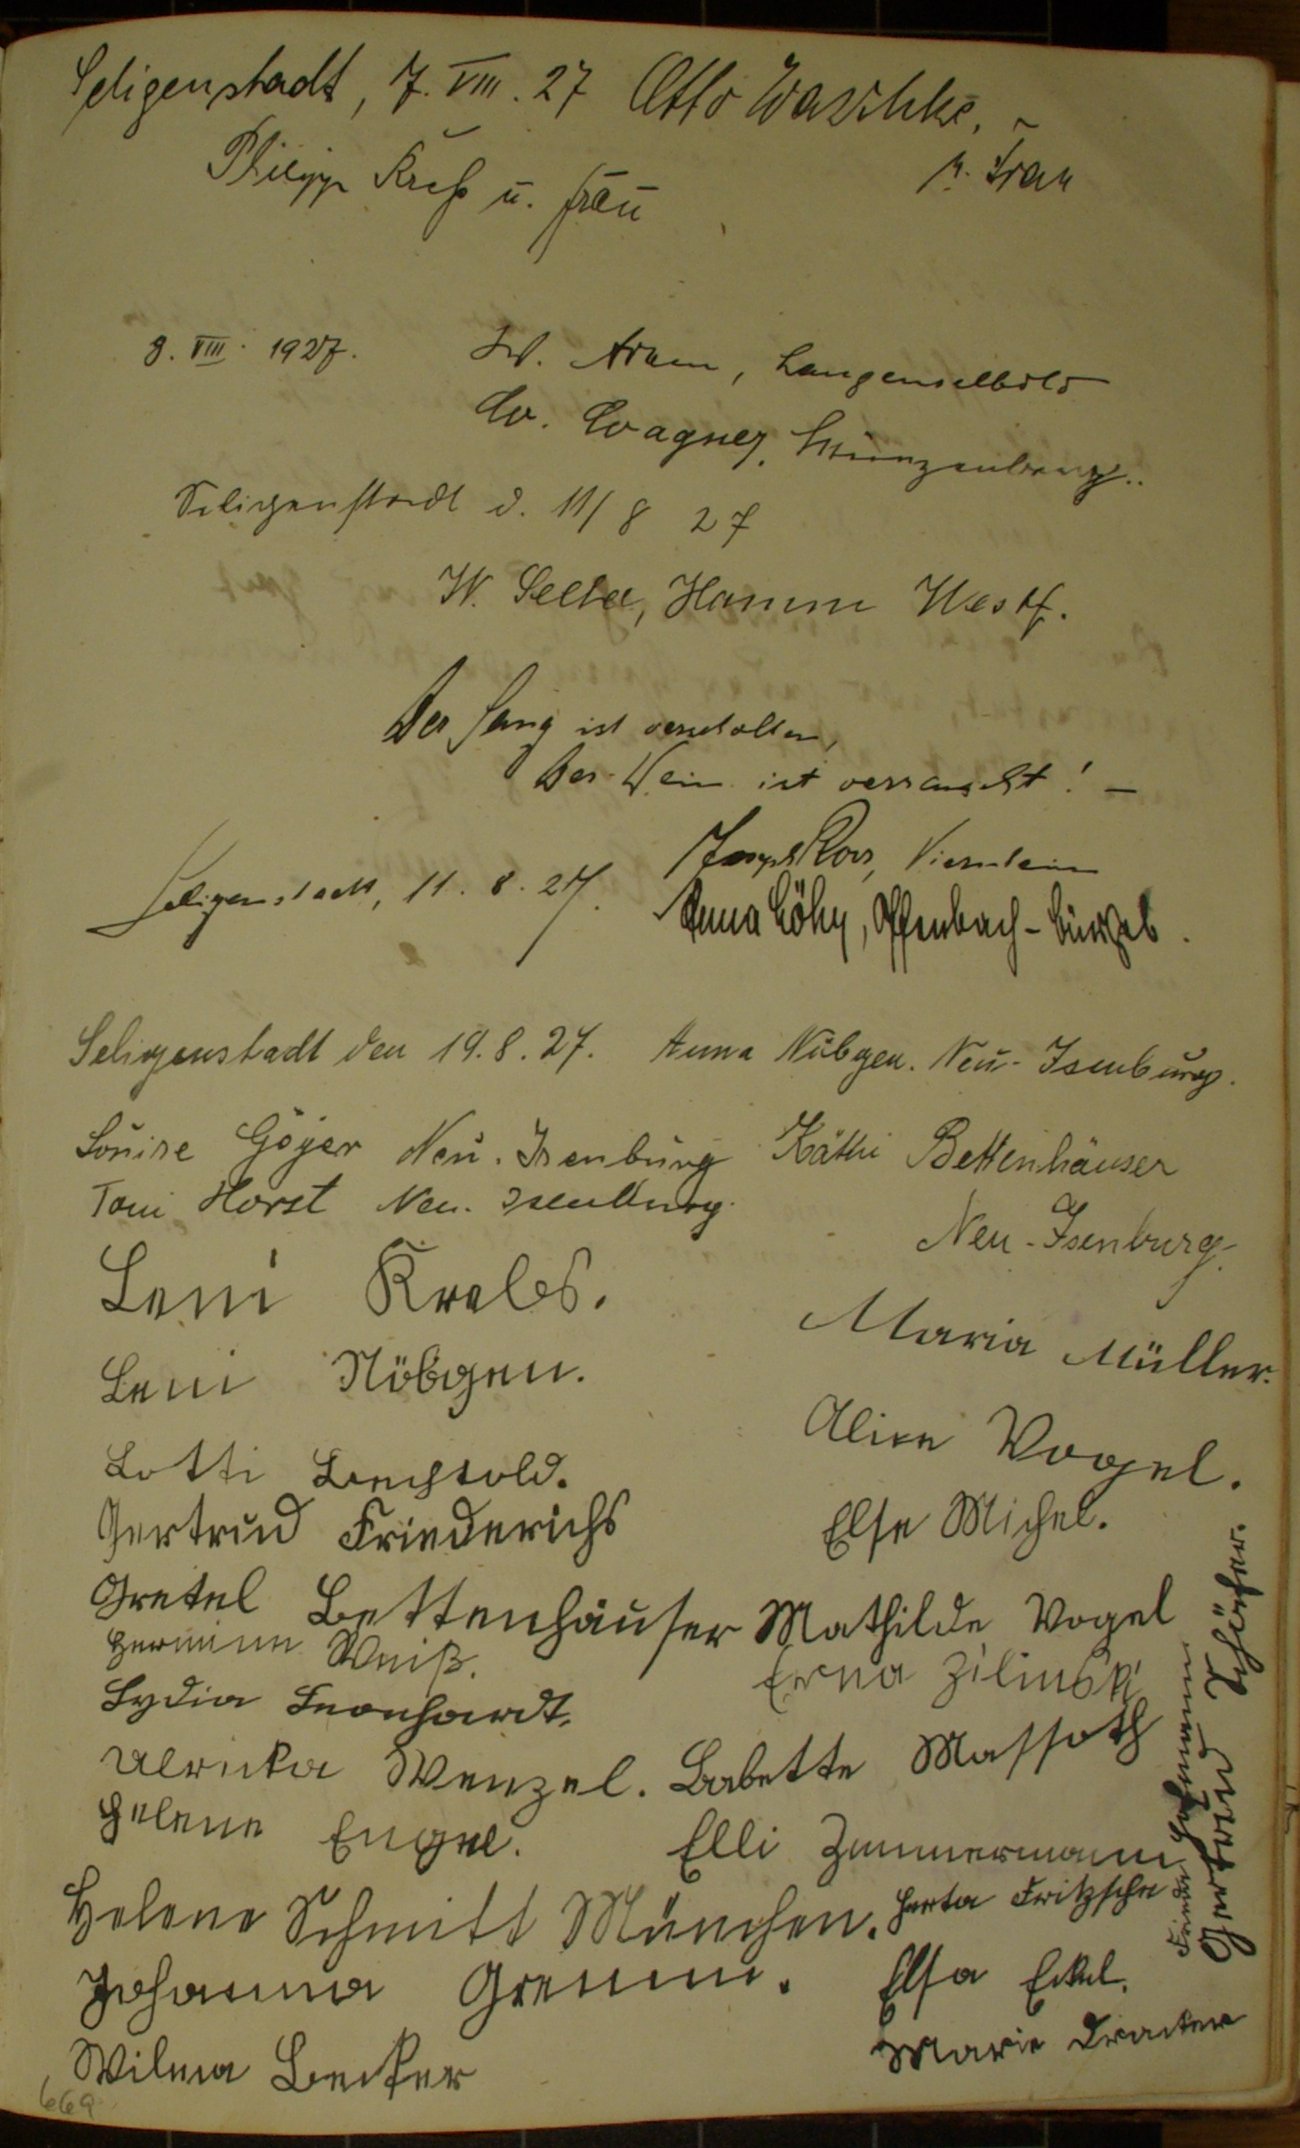 Seligenstadt, 7. VIII. 27 Otto Waschke,
u. Frau
Philipp Kreß u. Frau
8. VIII. 1927.
W. Adam, Langenselbold
W. Wagner, Münzenberg..
Seligenstadt d. 11/8 27
W. Hamm Westf.
Der Sang ist verschollen,
Der Wein ist verrauscht! –
Seligenstadt, 11. 8. 27.
Joseph Viernheim
Anna Offenbach-Bürgel.
Seligenstadt den 19. 8. 27. Anna Nübgen. Neu-Isenburg.
Louise Göjer Neu-Isenburg
Käthi Bettenhäuser
Neu-Isenburg.
Toni Horst Neu-Isenburg.
Leni Krebs.
Maria Müller.
Leni Nöbgen.
Alice Vogel.
Lotti Bechtold.
Else Michel.
Gertrud Friederichs
Gretel Bettenhäuser
Mathilde Vogel
Hermine Weiß.
Erna Zilinski
Lydia Leonhardt.
Ulricka Wenzel.
Babette Massoth
Helene Engel.
Elli Zimmermann
Helene Schmitt München.
Herta Fritzsche
Johanna Gremm.
Elsa Eckel.
Wilma Becker
Marie
Hofmann
Gertrud Schäfer.
669